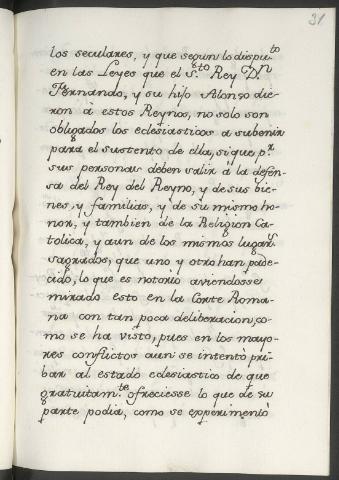 31
los seculares, y que segun lo dispu.to
en las Leyes que el S.to Rey D.n
Fernando, y su hijo Alonso die-
ron à estos Reynos, no solo son
obligados los eclesiasticos a subenir
para el sustento de ella, si que p.r
sus personas deben salir à la defen-
sa del Rey del Reyno, y de sus bie-
nes, y familias, y de su mismo ho-
nor, y tambien de la Religion Ca-
tolica, y aun de los mismos lugar.s
sagrados, que uno y otro han pade-
cido, lo que es notorio aviendosse
mirado esto en la Corte Roma-
na con tan poca deliberacion, co-
mo se ha visto, pues en los mayo-
res conflictos aun se intentò pri-
bar al estado eclesiastico de que
gratuitam.te ofreciesse lo que de su
parte podia, como se experimentò